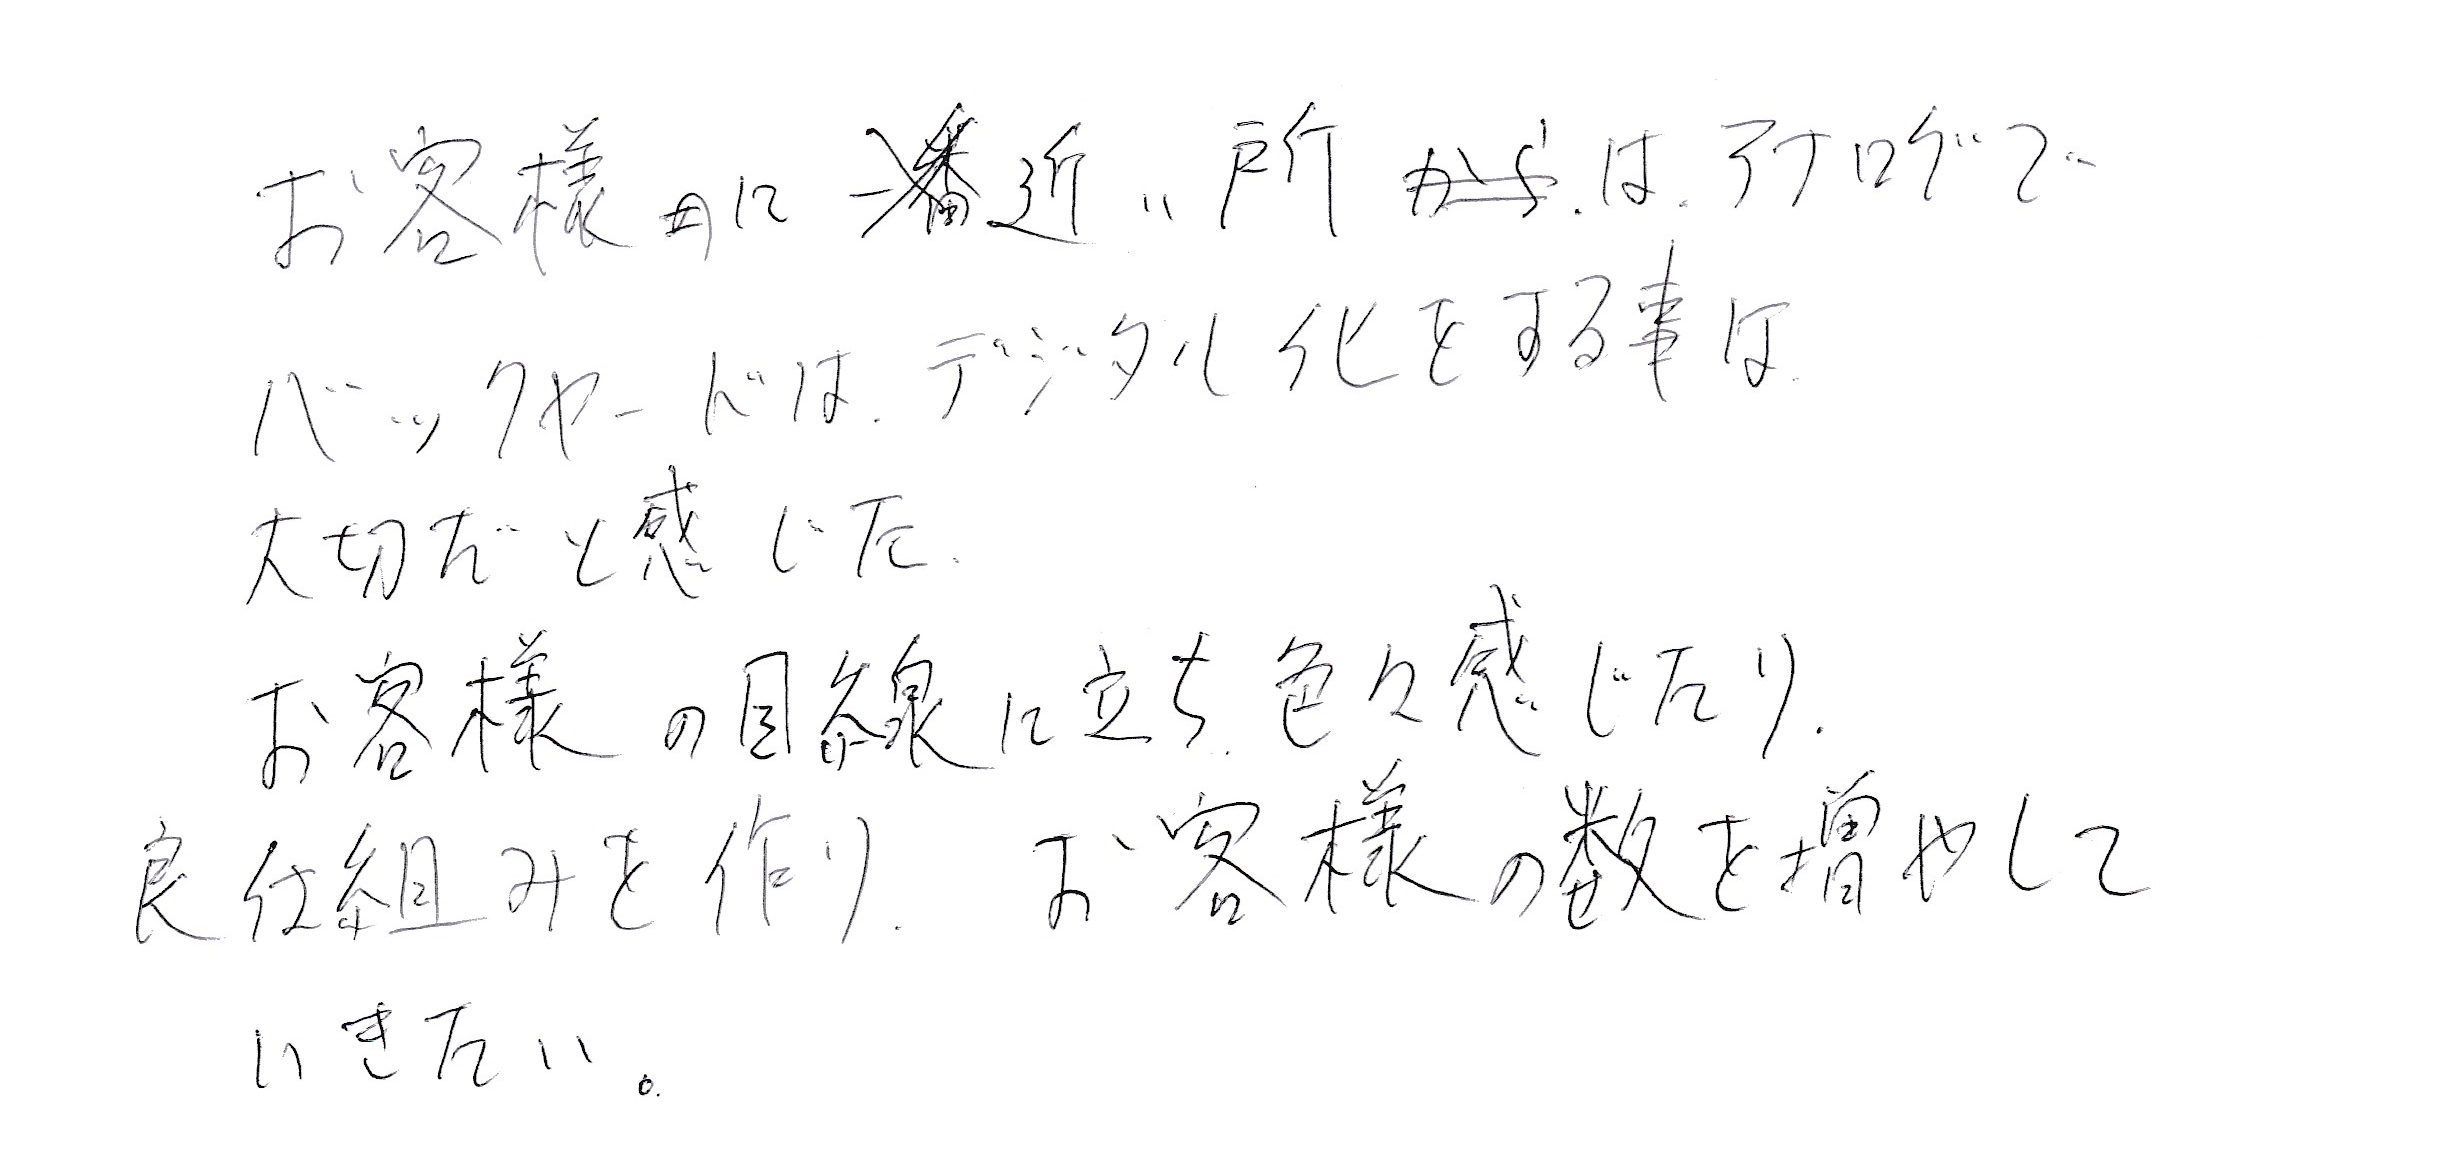 お客様に一番近い所は、アナログで
バックヤードは、デジタル化をする事は
大切だと感じた、
お客様の目線に立ち、色々感じたり、
良仕組みを作り、お客様の数を増やして
いきたい。